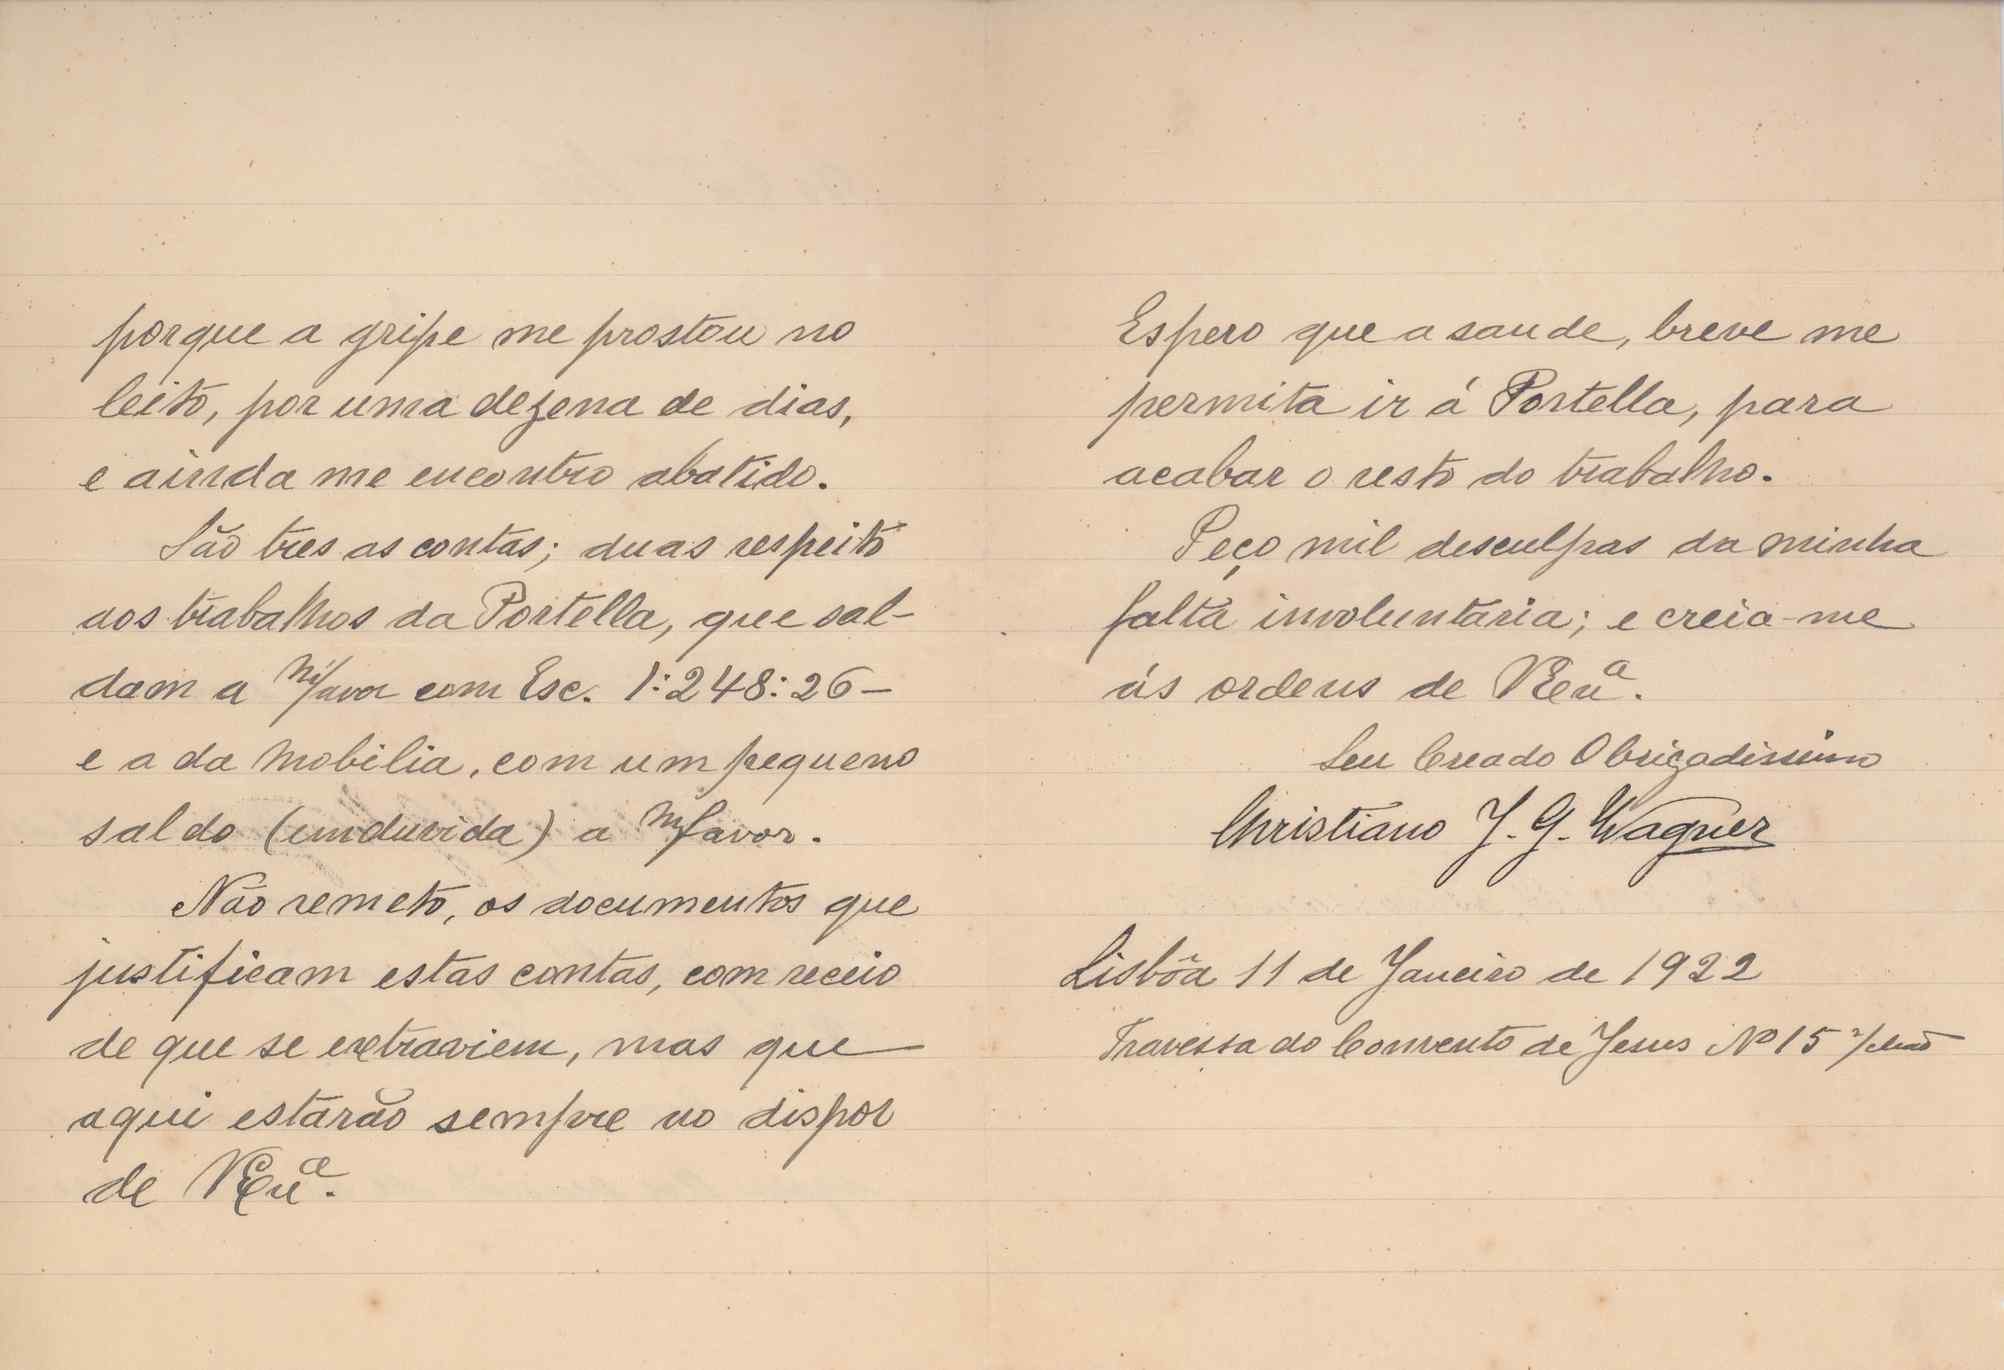 porque a gripe me prostou no
leito, por uma dezena de dias,
e ainda me encontro abatido.
São tres as contas; duas respeito
aos trabalhos da Portella, que sal-
dam a m/favor com Esc. 1:248:26-
e a da mobilia, com um pequeno
saldo (em duvida) a m/favor.
Não remeto, os documentos que
justificam estas contas, com receio
de que se extraviem, mas que
aqui estarão sempre ao dispor
de VExª.
Espero que a saude, breve me
permita ir á Portella, para
acabar o resto do trabalho.
Peço mil desculpas da minha
falta involuntaria; e creia-me
ás ordens de VExª.
Seu Creado Obrigadissimo
Christiano J. G. Wagner
Lisbôa 11 de Janeiro de 1922
Travessa do Convento de Jesus Nº 15